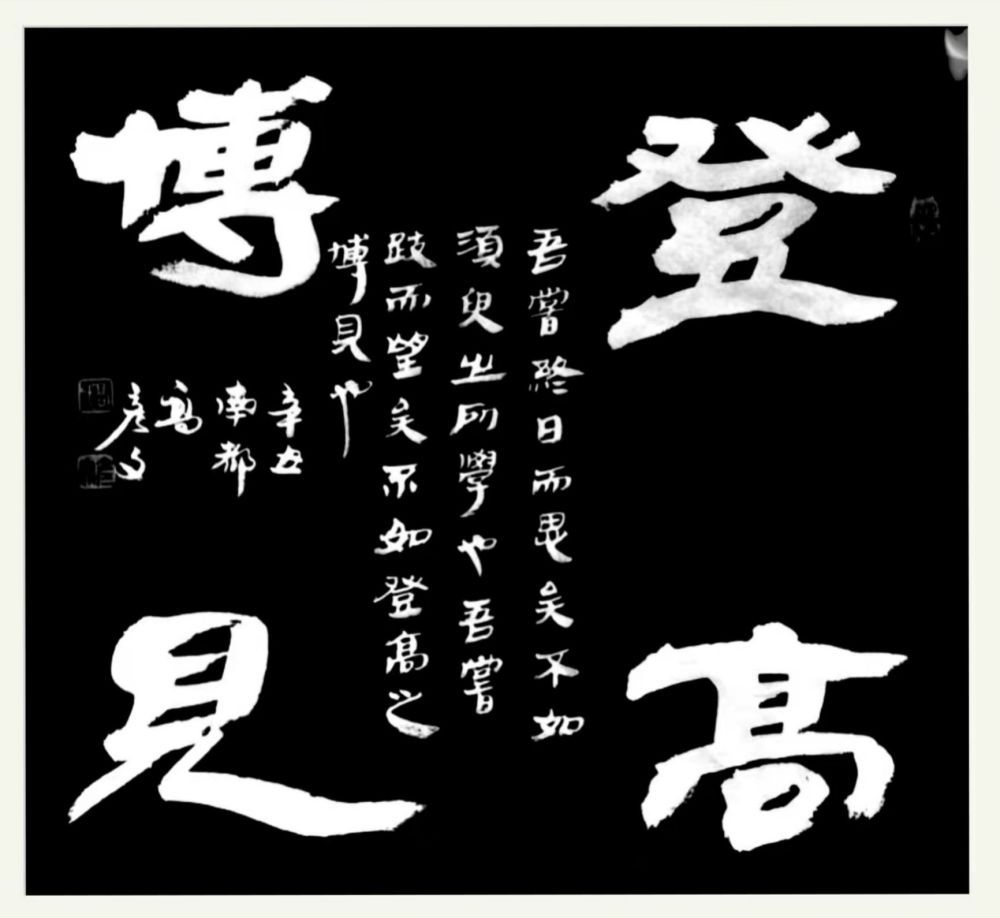 登高
博見
吾嘗終日而思矣不如
須臾之所學也吾嘗
跂而望矣不如登高之
博見也
辛丑
南都
高
彦文